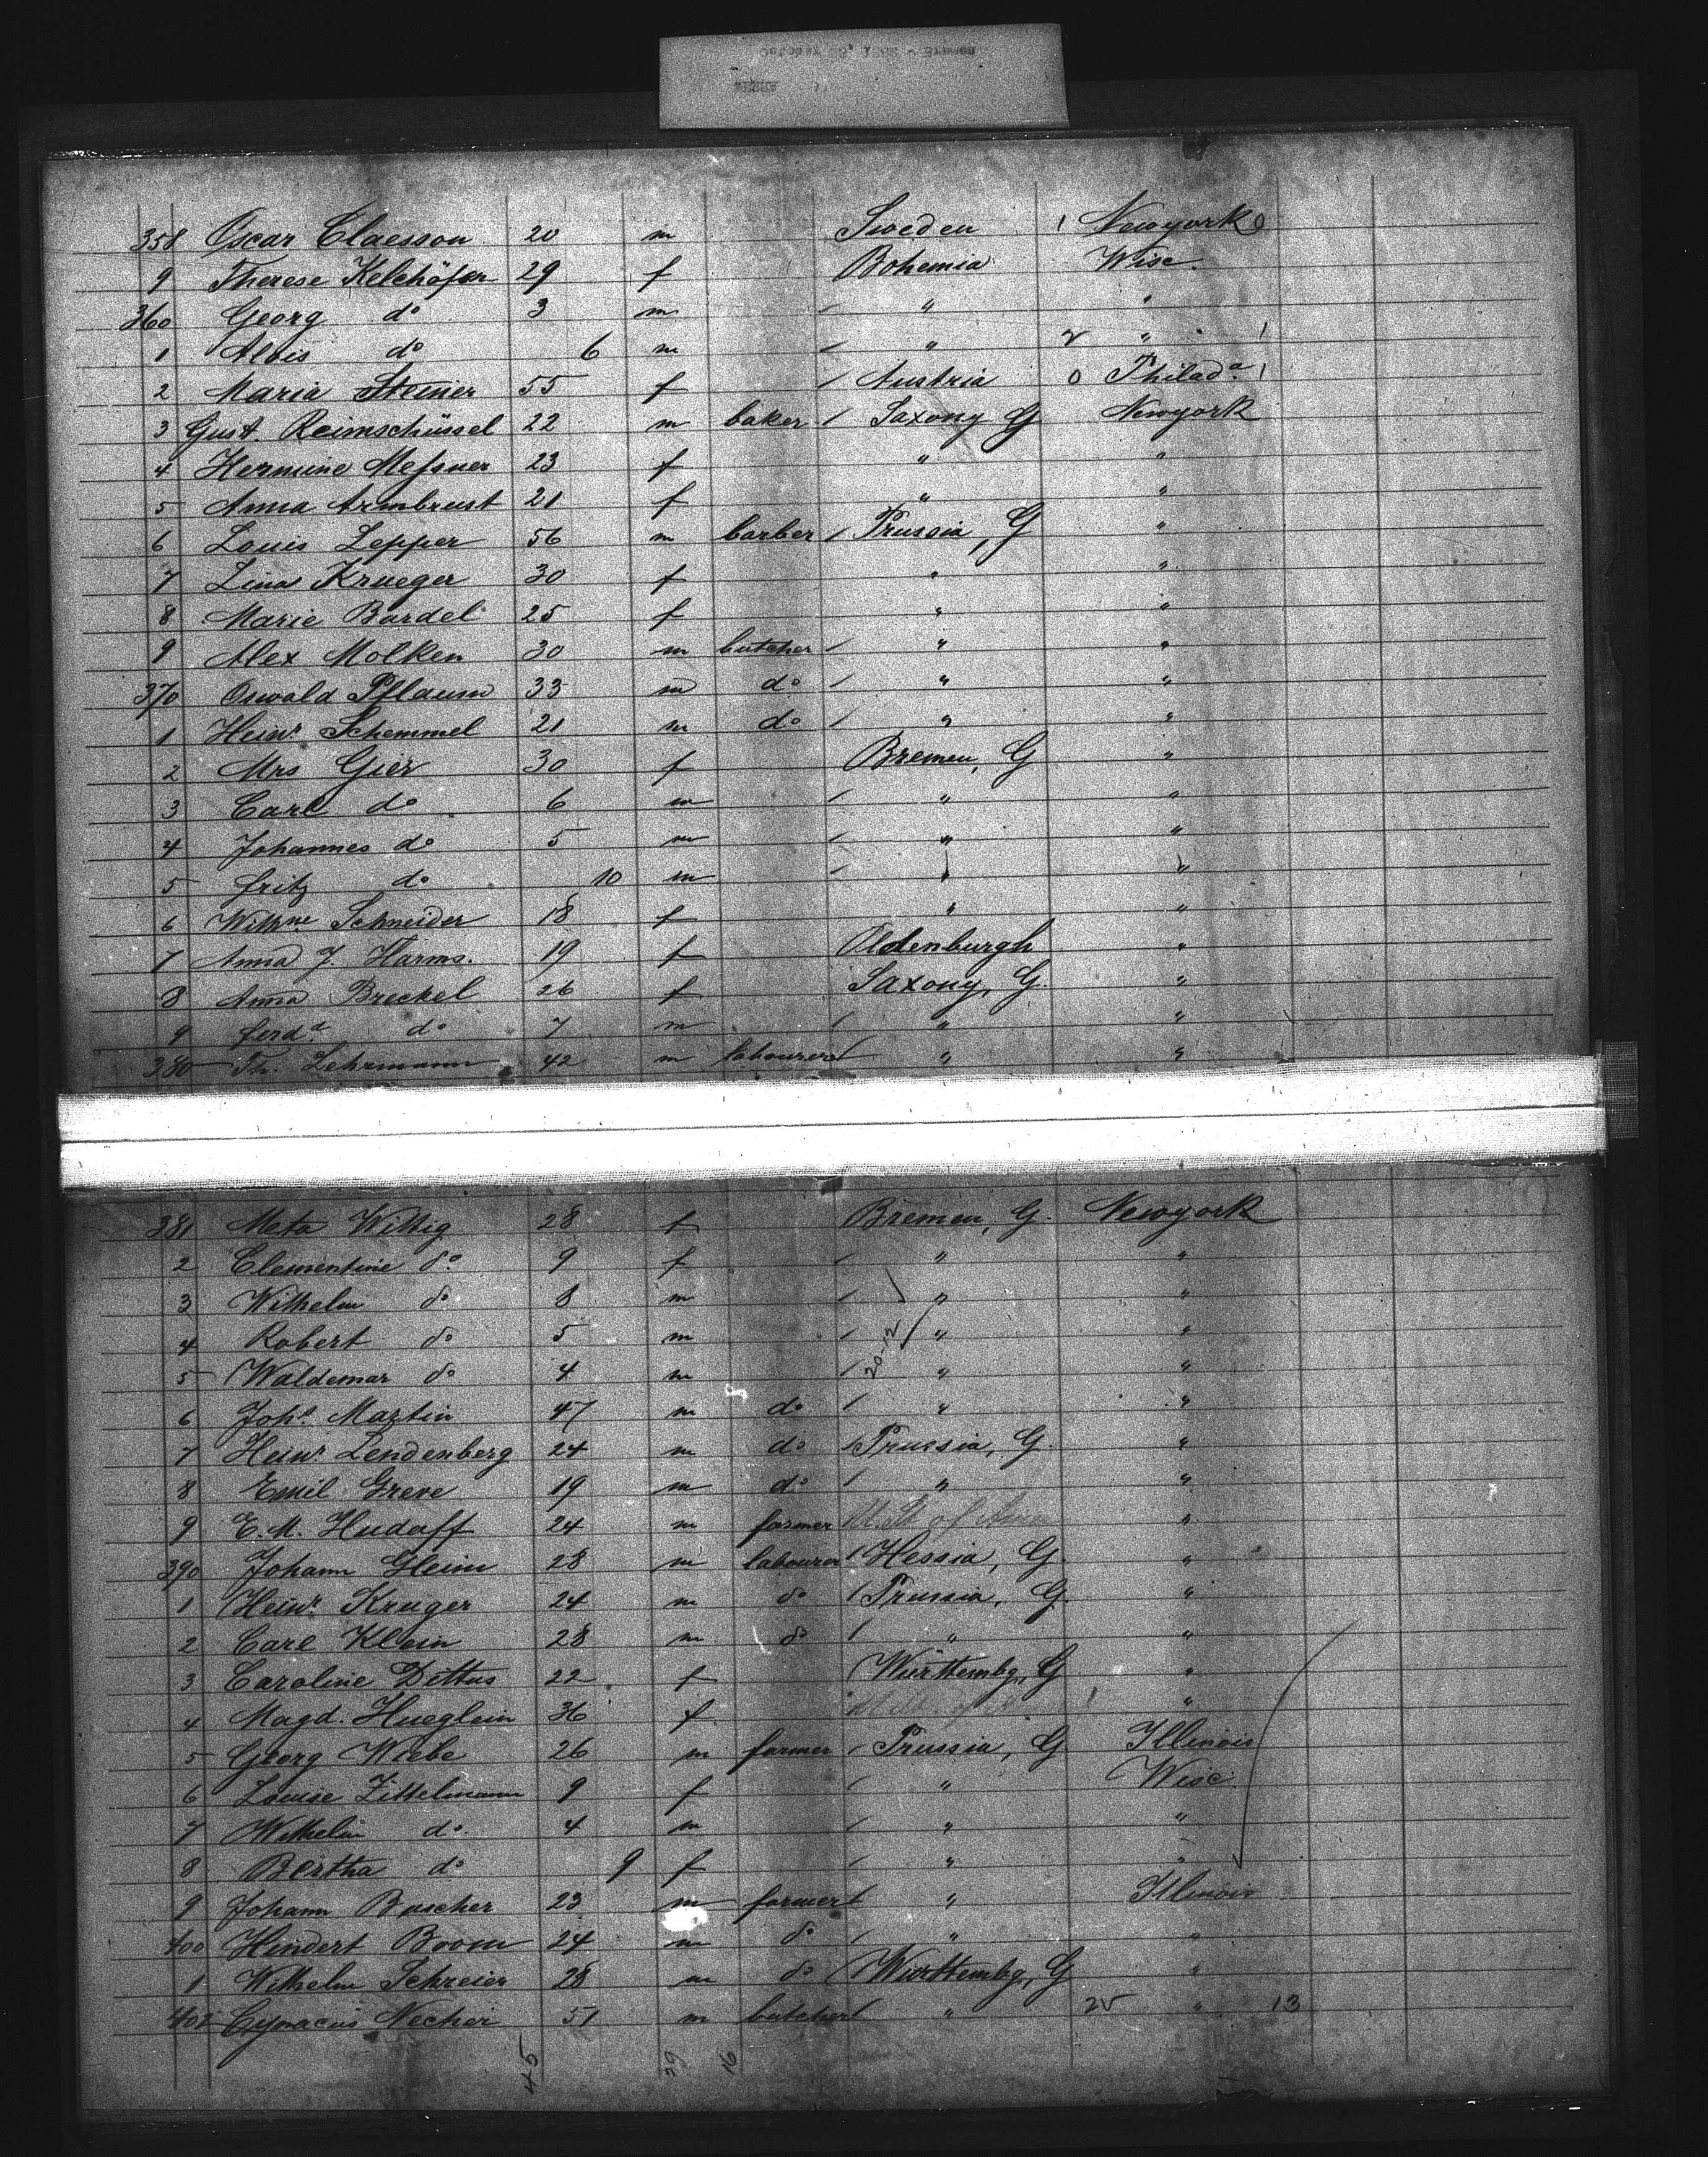 358 Oscar Claesson 20 m Sweden 1 Newyork 0
9 Therese Kelchöfer 29 f Bohemia Wisc.
360 Georg do 3 m / " "
1 Alois do 6 m / " 2 " 1
2 Maria Steiner 55 f / Austria 0 Philada. 1
3 Gust. Reimschüssel 22 m baker / Saxony G Newyork
4 Hermine Messner 23 f " "
5 Anna Armbrust 21 f " "
6 Louis Lepper 56 m barber / Prussia, G "
7 Lina Krueger 30 f " "
8 Marie Bardel 25 f " "
9 Alex Molken 30 m butcher / " "
370 Oswald Pflaum 33 m do / " "
1 Heinr. Schemmel 21 m do / " "
2 Mrs Gier 30 f Bremen, G "
3 Carl do 6 m / " "
4 Johannes do 5 m / " "
5 Fritz do 10 m / " "
6 Wilhne Schneider 18 f " "
7 Anna J. Harms. 19 f Oldenburgh "
8 Anna Breckel 26 f Saxony, G. "
9 Ferdd. do 7 m / " "
380 Th. Lehrmann 42 m labourer / " "
381 Meta Wittig 28 f Bremen, G. Newyork
2 Clementine do 9 f / " "
3 Wilhelm do 8 m / " "
4 Robert do 5 m / " "
5 Waldemar do 4 m / 20-12 " "
6 Johs. Martin 47 m do / " "
7 Heinr. Lendenberg 24 m do / Prussia, G. "
8 Emil Greve 19 m do / " "
9 E. M. Hudaff 24 m farmer U. St. of Amer "
390 Johann Gleim 28 m labourer / Hessia, G. "
1 Heinr. Kruger 24 m do / Prussia, G. "
2 Carl Klein 28 m do / " "
3 Caroline Dettus 22 f Württembg, G "
4 Magd. Hueglein 36 f 1 "
5 Georg Wiebe 26 m farmer / Prussia, G Illinois
6 Louise Zittelmann 9 f / " Wisc.
7 Wilhelm do. 4 m / " "
8 Bertha do 9 f / " "
9 Johann Buscher 23 m farmer / " Illinois
400 Hindert Boom 24 m do / " "
1 Wilhelm Schreier 28 m do / Württembg, G "
402 Cyriacus Necher 51 m butcher / " 2 " 13
45 29 16